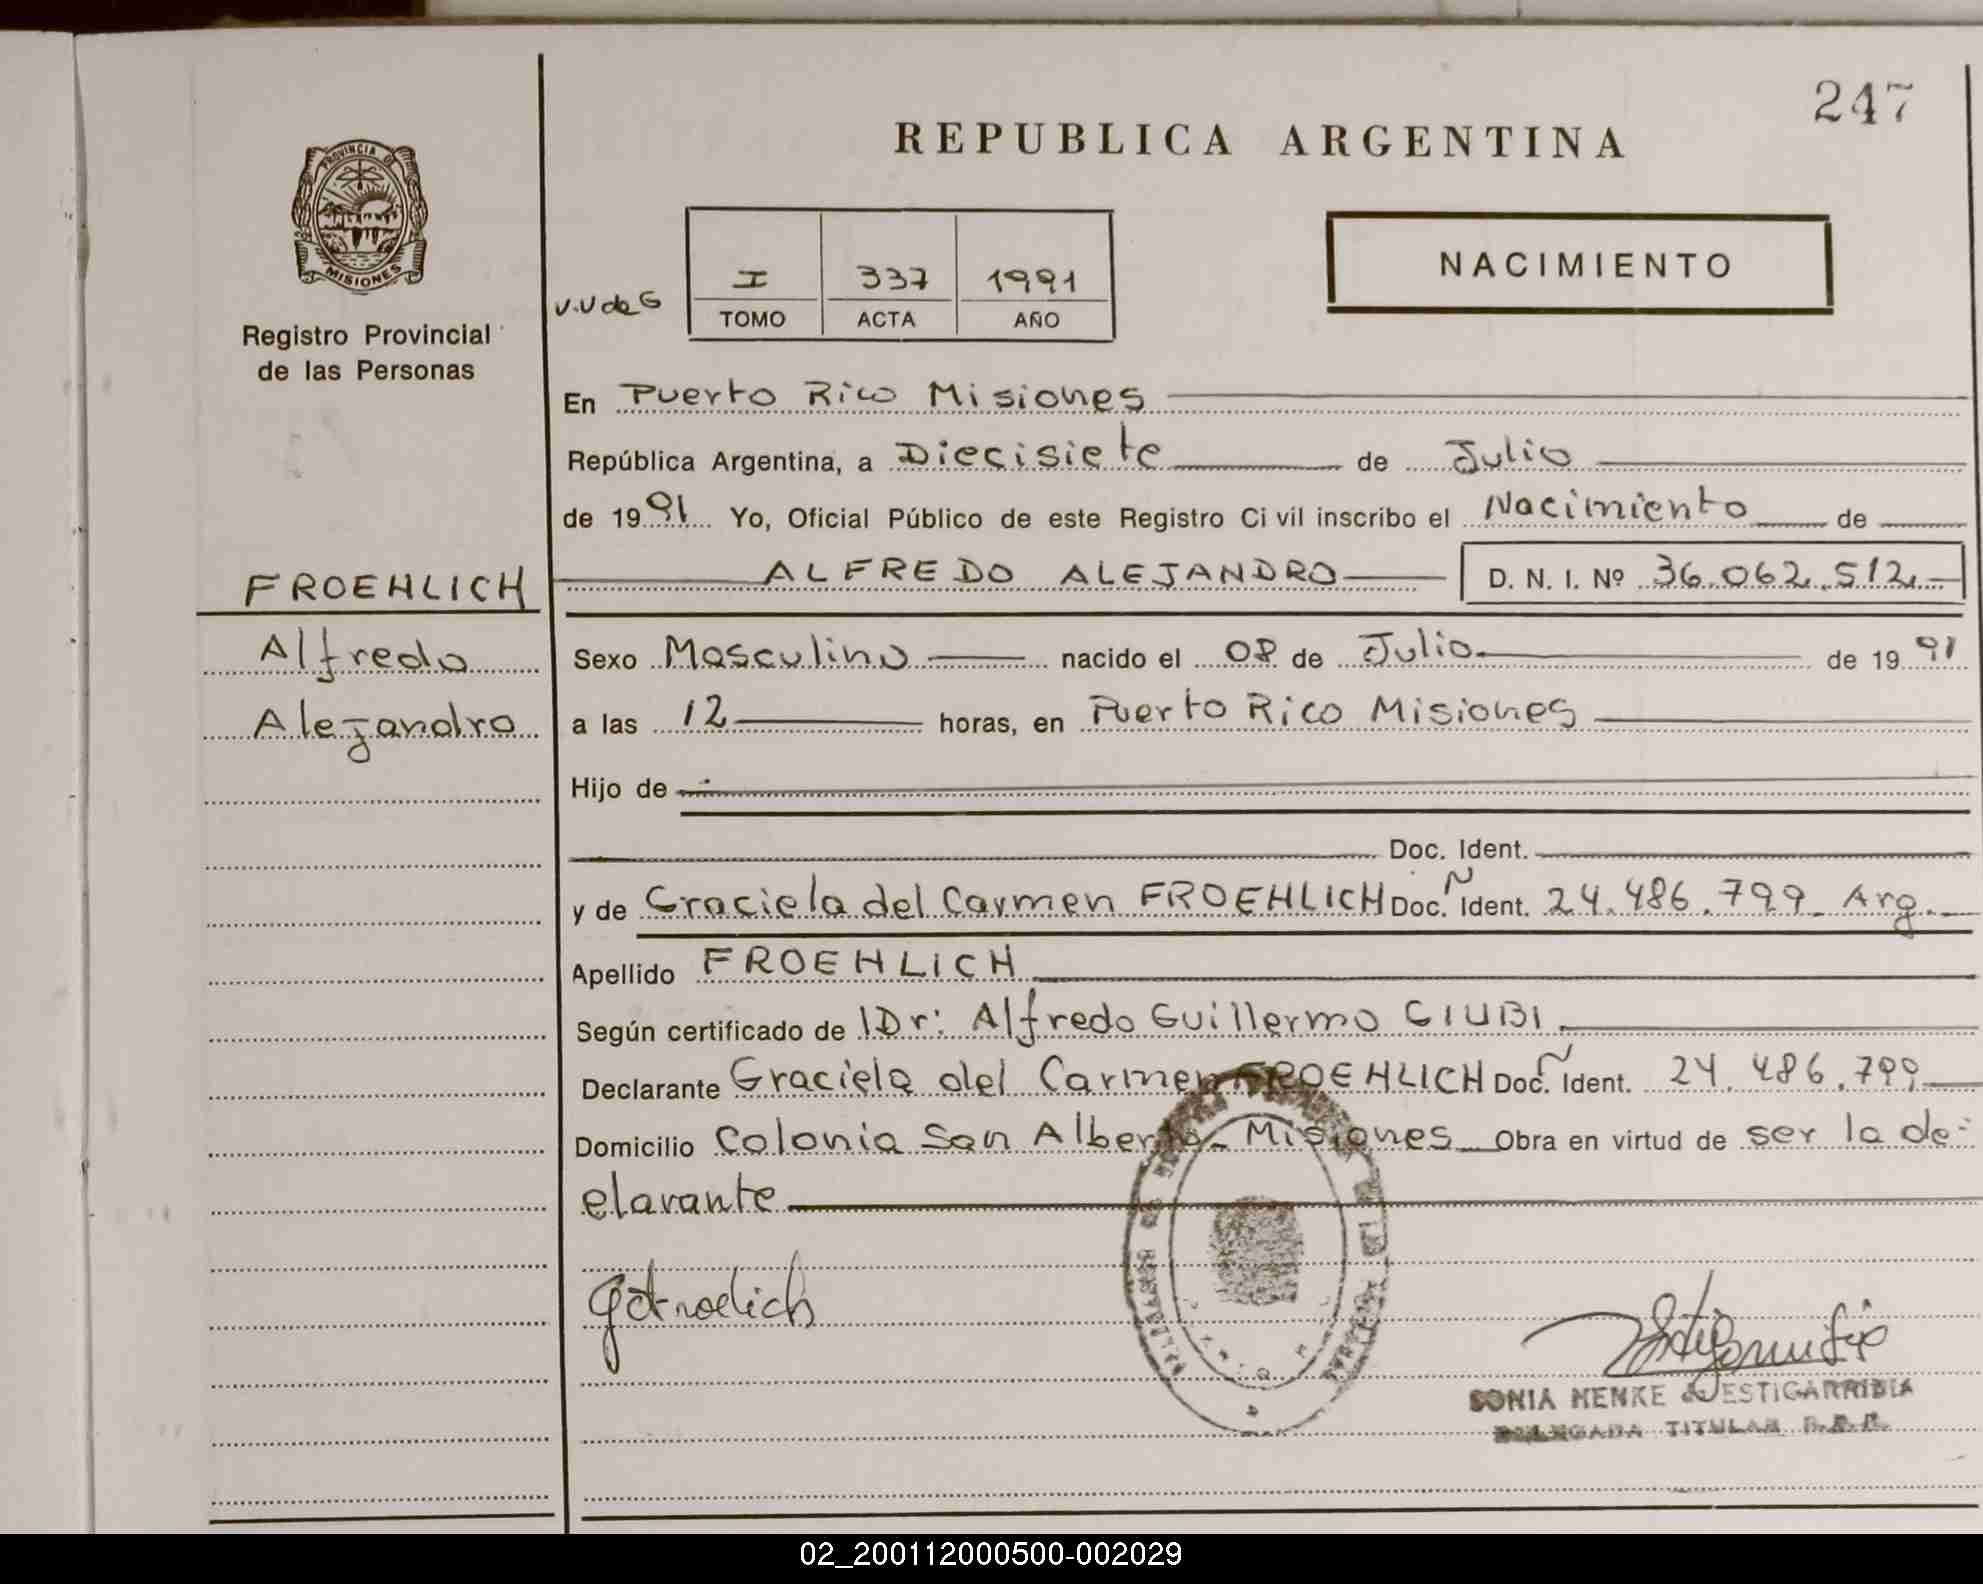 247
REPUBLICA ARGENTINA
PROVINCIA DE
MISIONES
Registro Provincial
de las Personas
V.V de G
I 337 1991
TOMO ACTA AÑO
NACIMIENTO
En Puerto Rico Misiones
República Argentina, a Diecisiete de Julio
de 1991 Yo, Oficial Público de este Registro Ci vil inscribo el Nacimiento de
FROEHLICH
Alfredo
Alejandro
ALFREDO ALEJANDRO D. N. I. Nº 36.062.512
Sexo Masculino nacido el 08 de Julio de 1991
a las 12 horas, en Puerto Rico Misiones
Hijo de
Doc. Ident.
y de Graciela del Carmen FROEHLICH Doc. Ñ Ident. 24.486.799 Arg.
Apellido FROEHLICH
Según certificado de Dr: Alfredo Guillermo CIUBI
Declarante Graciela del Carmen FROEHLICH Doc. Ñ Ident. 24.486.799
Domicilio Colonia San Alberto Misiones Obra en virtud de ser la de-
clarante
SONIA MENKE de ESTIGARRIBIA
DELEGADA TITULAR R.P.P.
02_200112000500-002029